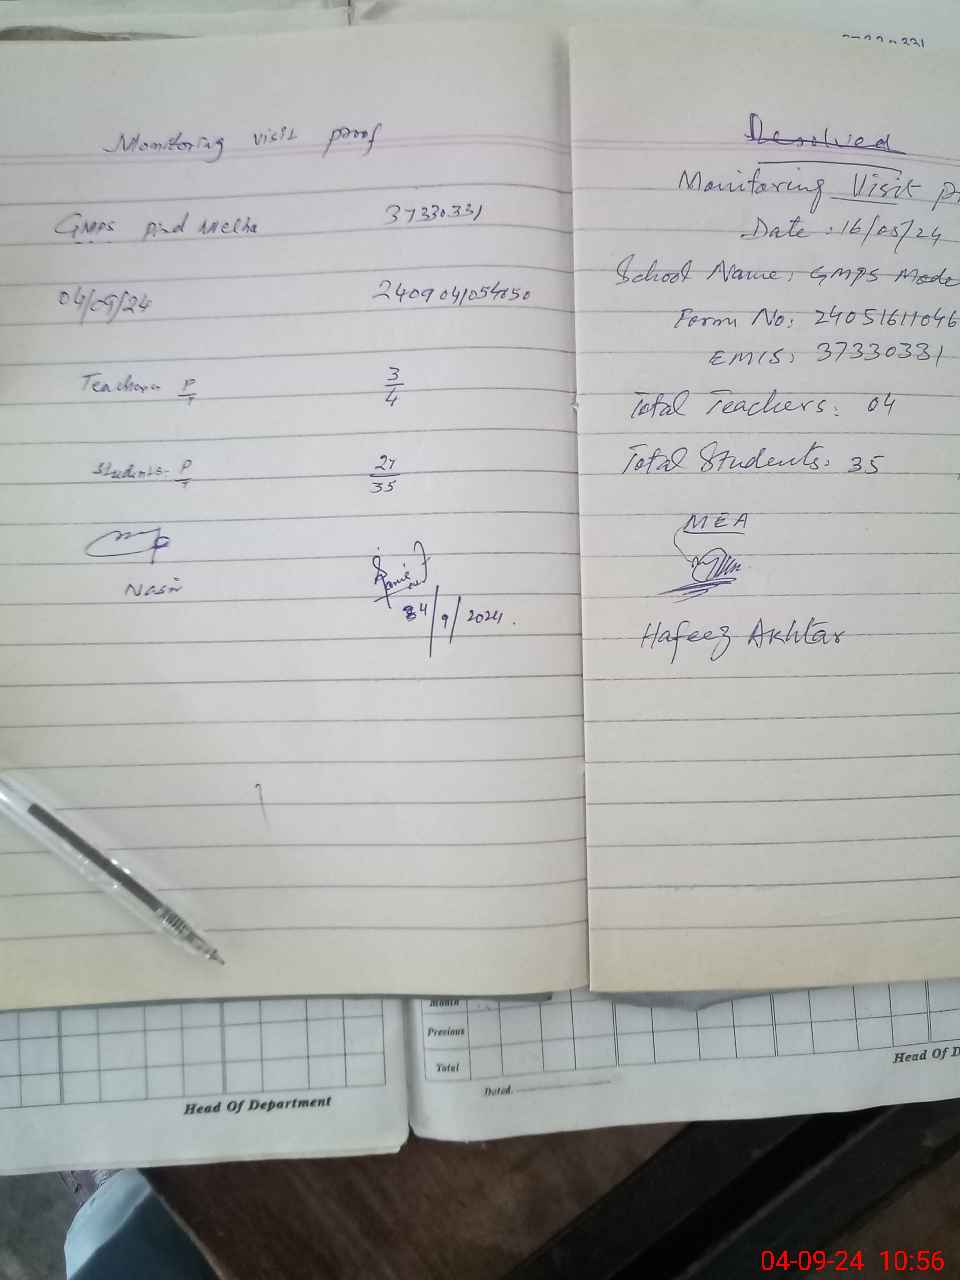 Monitoring visit proof
GMPS Pind Melha 37330331
04/09/24 2409041054050
Teachers P/T 3/4
Students P/T 27/35
Nasir
04/9/2024.
Resolved
Monitoring Visit
Date: 16/05/24
School Name: GMPS
Form No: 24051611046
EMIS: 37330331
Total Teachers: 04
Total Students: 35
MEA
Hafeez Akhtar
Month
Previous
Total
Dated.
Head Of Department
Head Of D
04-09-24 10:56